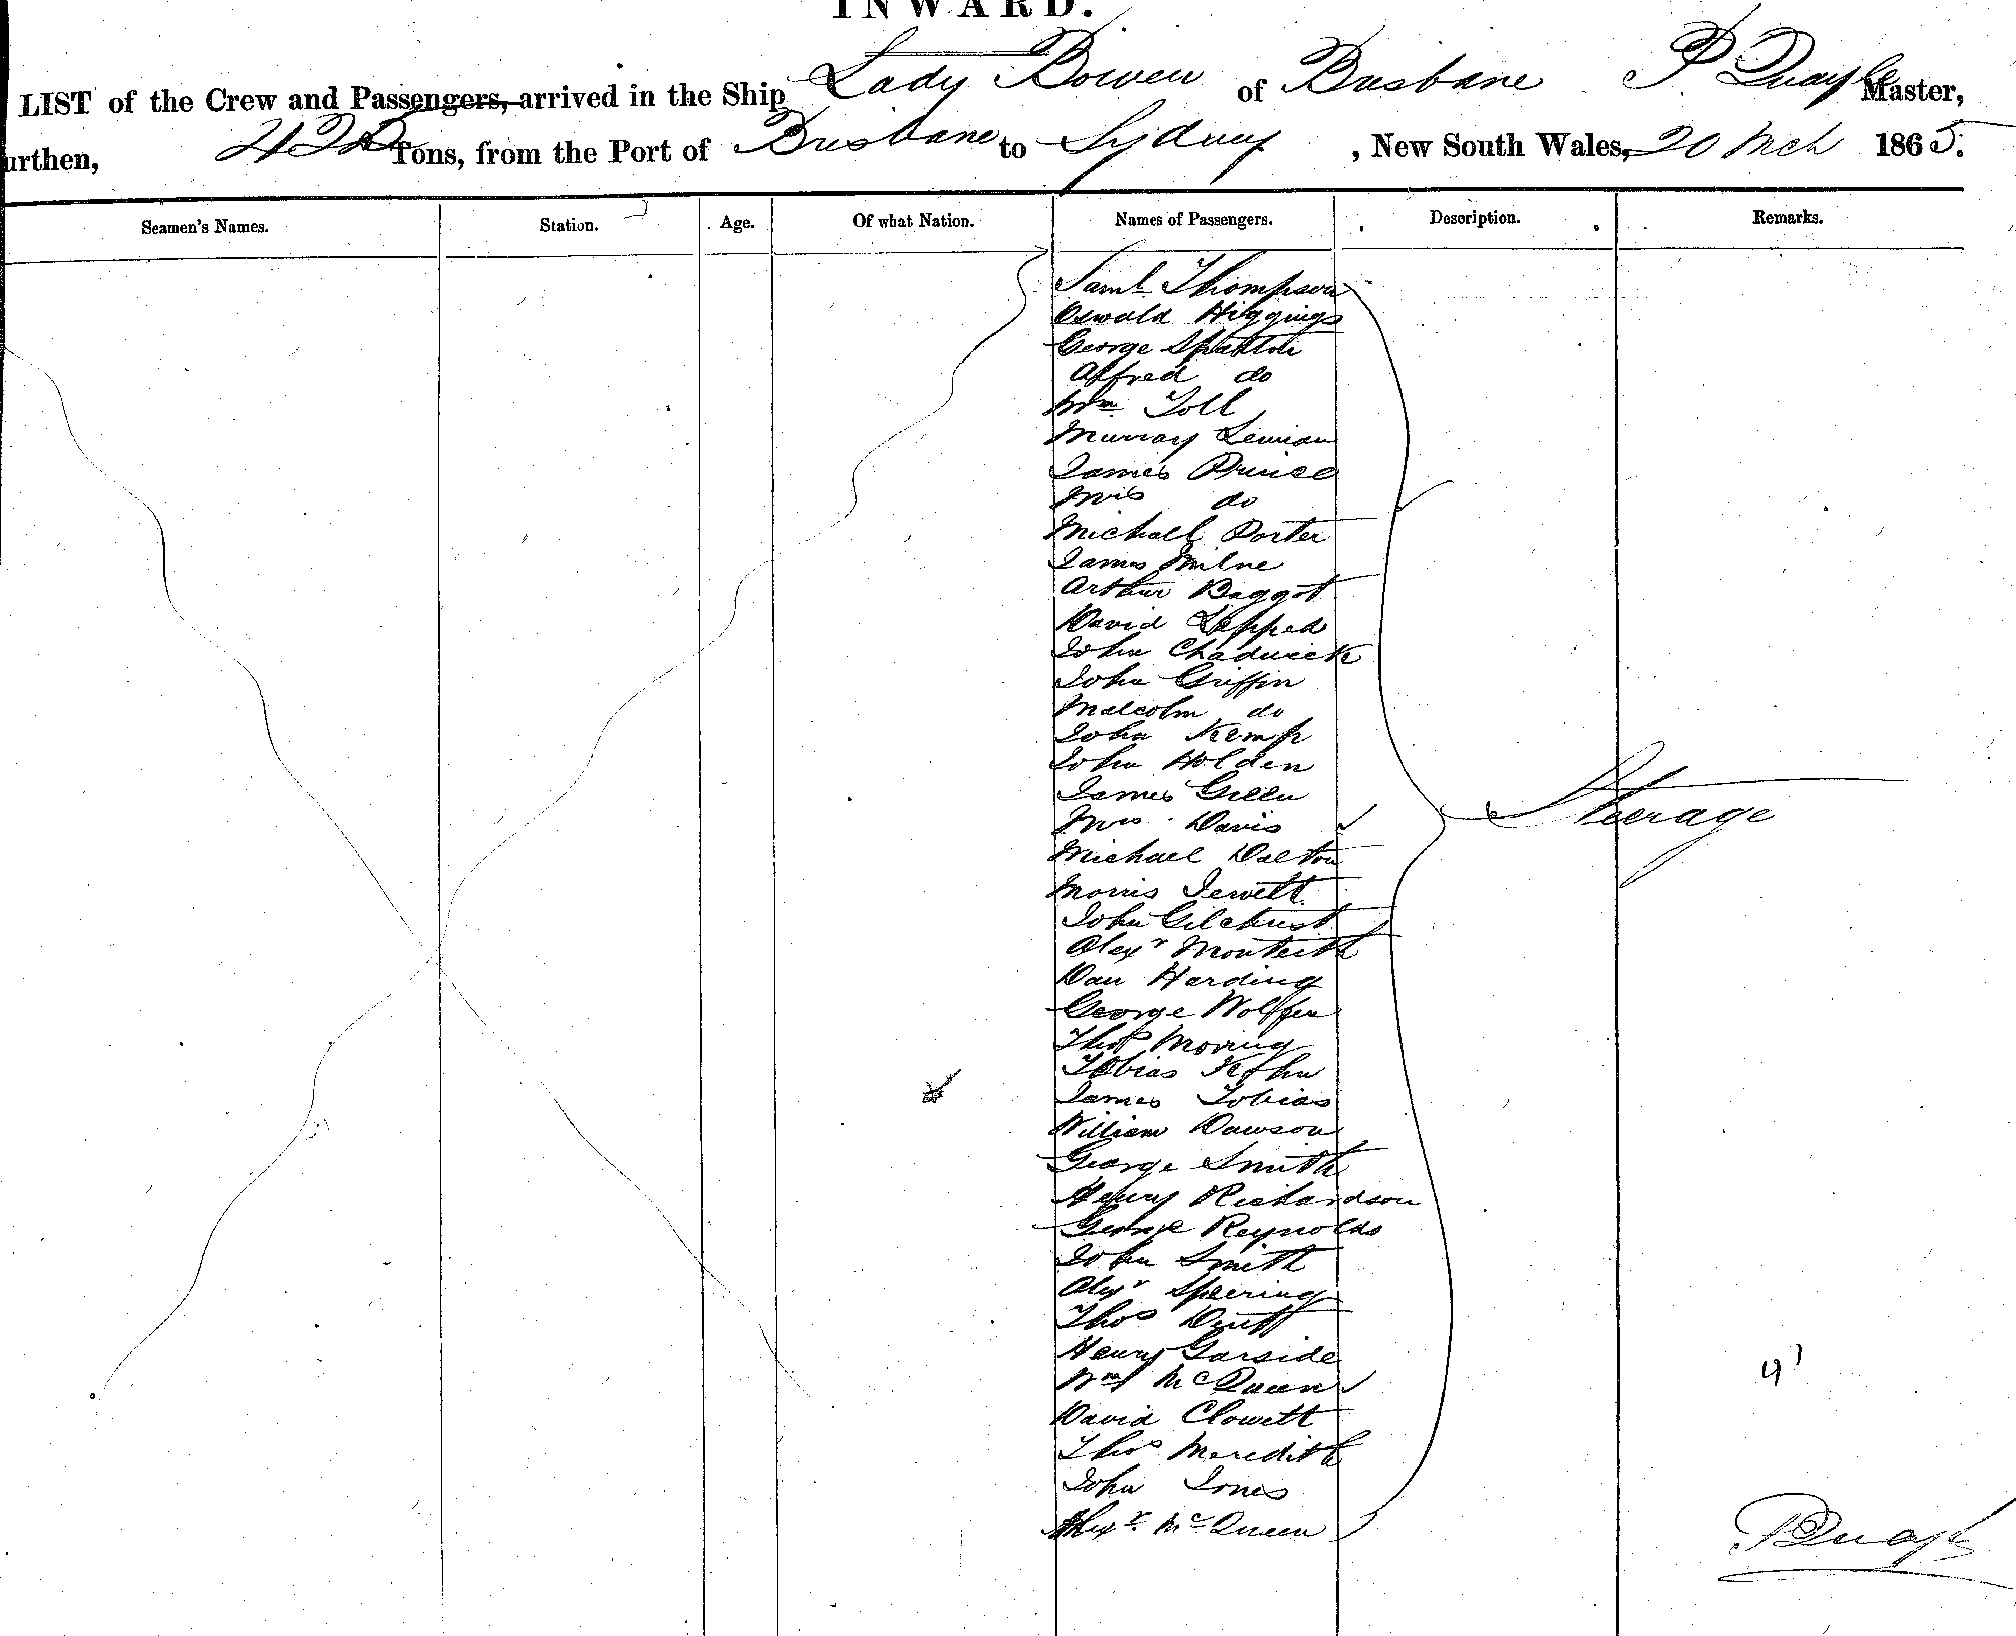 INWARD.
LIST of the Crew and Passengers, arrived in the Ship Lady Bowen of Brisbane P Quayle Master,
urthen, 425 Tons, from the Port of Brisbane to Sydney , New South Wales, 20 Mch 1865.
Seamen's Names. Station. Age. Of what Nation. Names of Passengers. Description. Remarks.
Saml Thompson
Oswald Higgings
George
Alfred do
Wm Toll
Murray
James Prince
Mrs do
Michall Porter
James Milne
Arthur Baggot
David
John Chadwick
John Griffin
Malcolm do
John Kemp
John Holden
James Green
Mrs Davis
Steerage
Michael Dalton
Morris Jewett
John Gilchrist
Alexr Monteith
Dan Harding
George Wolffen
Thos Moring
Tobias Kohn
James Tobias
William Dawson
George Smith
Henry Richardson
George Reynolds
John Smith
Alexr Speering
Thos
Henry Garside
Wm McQueen
David Clowett
Thos Meredith
John Jones
Alexr McQueen
P Quayle